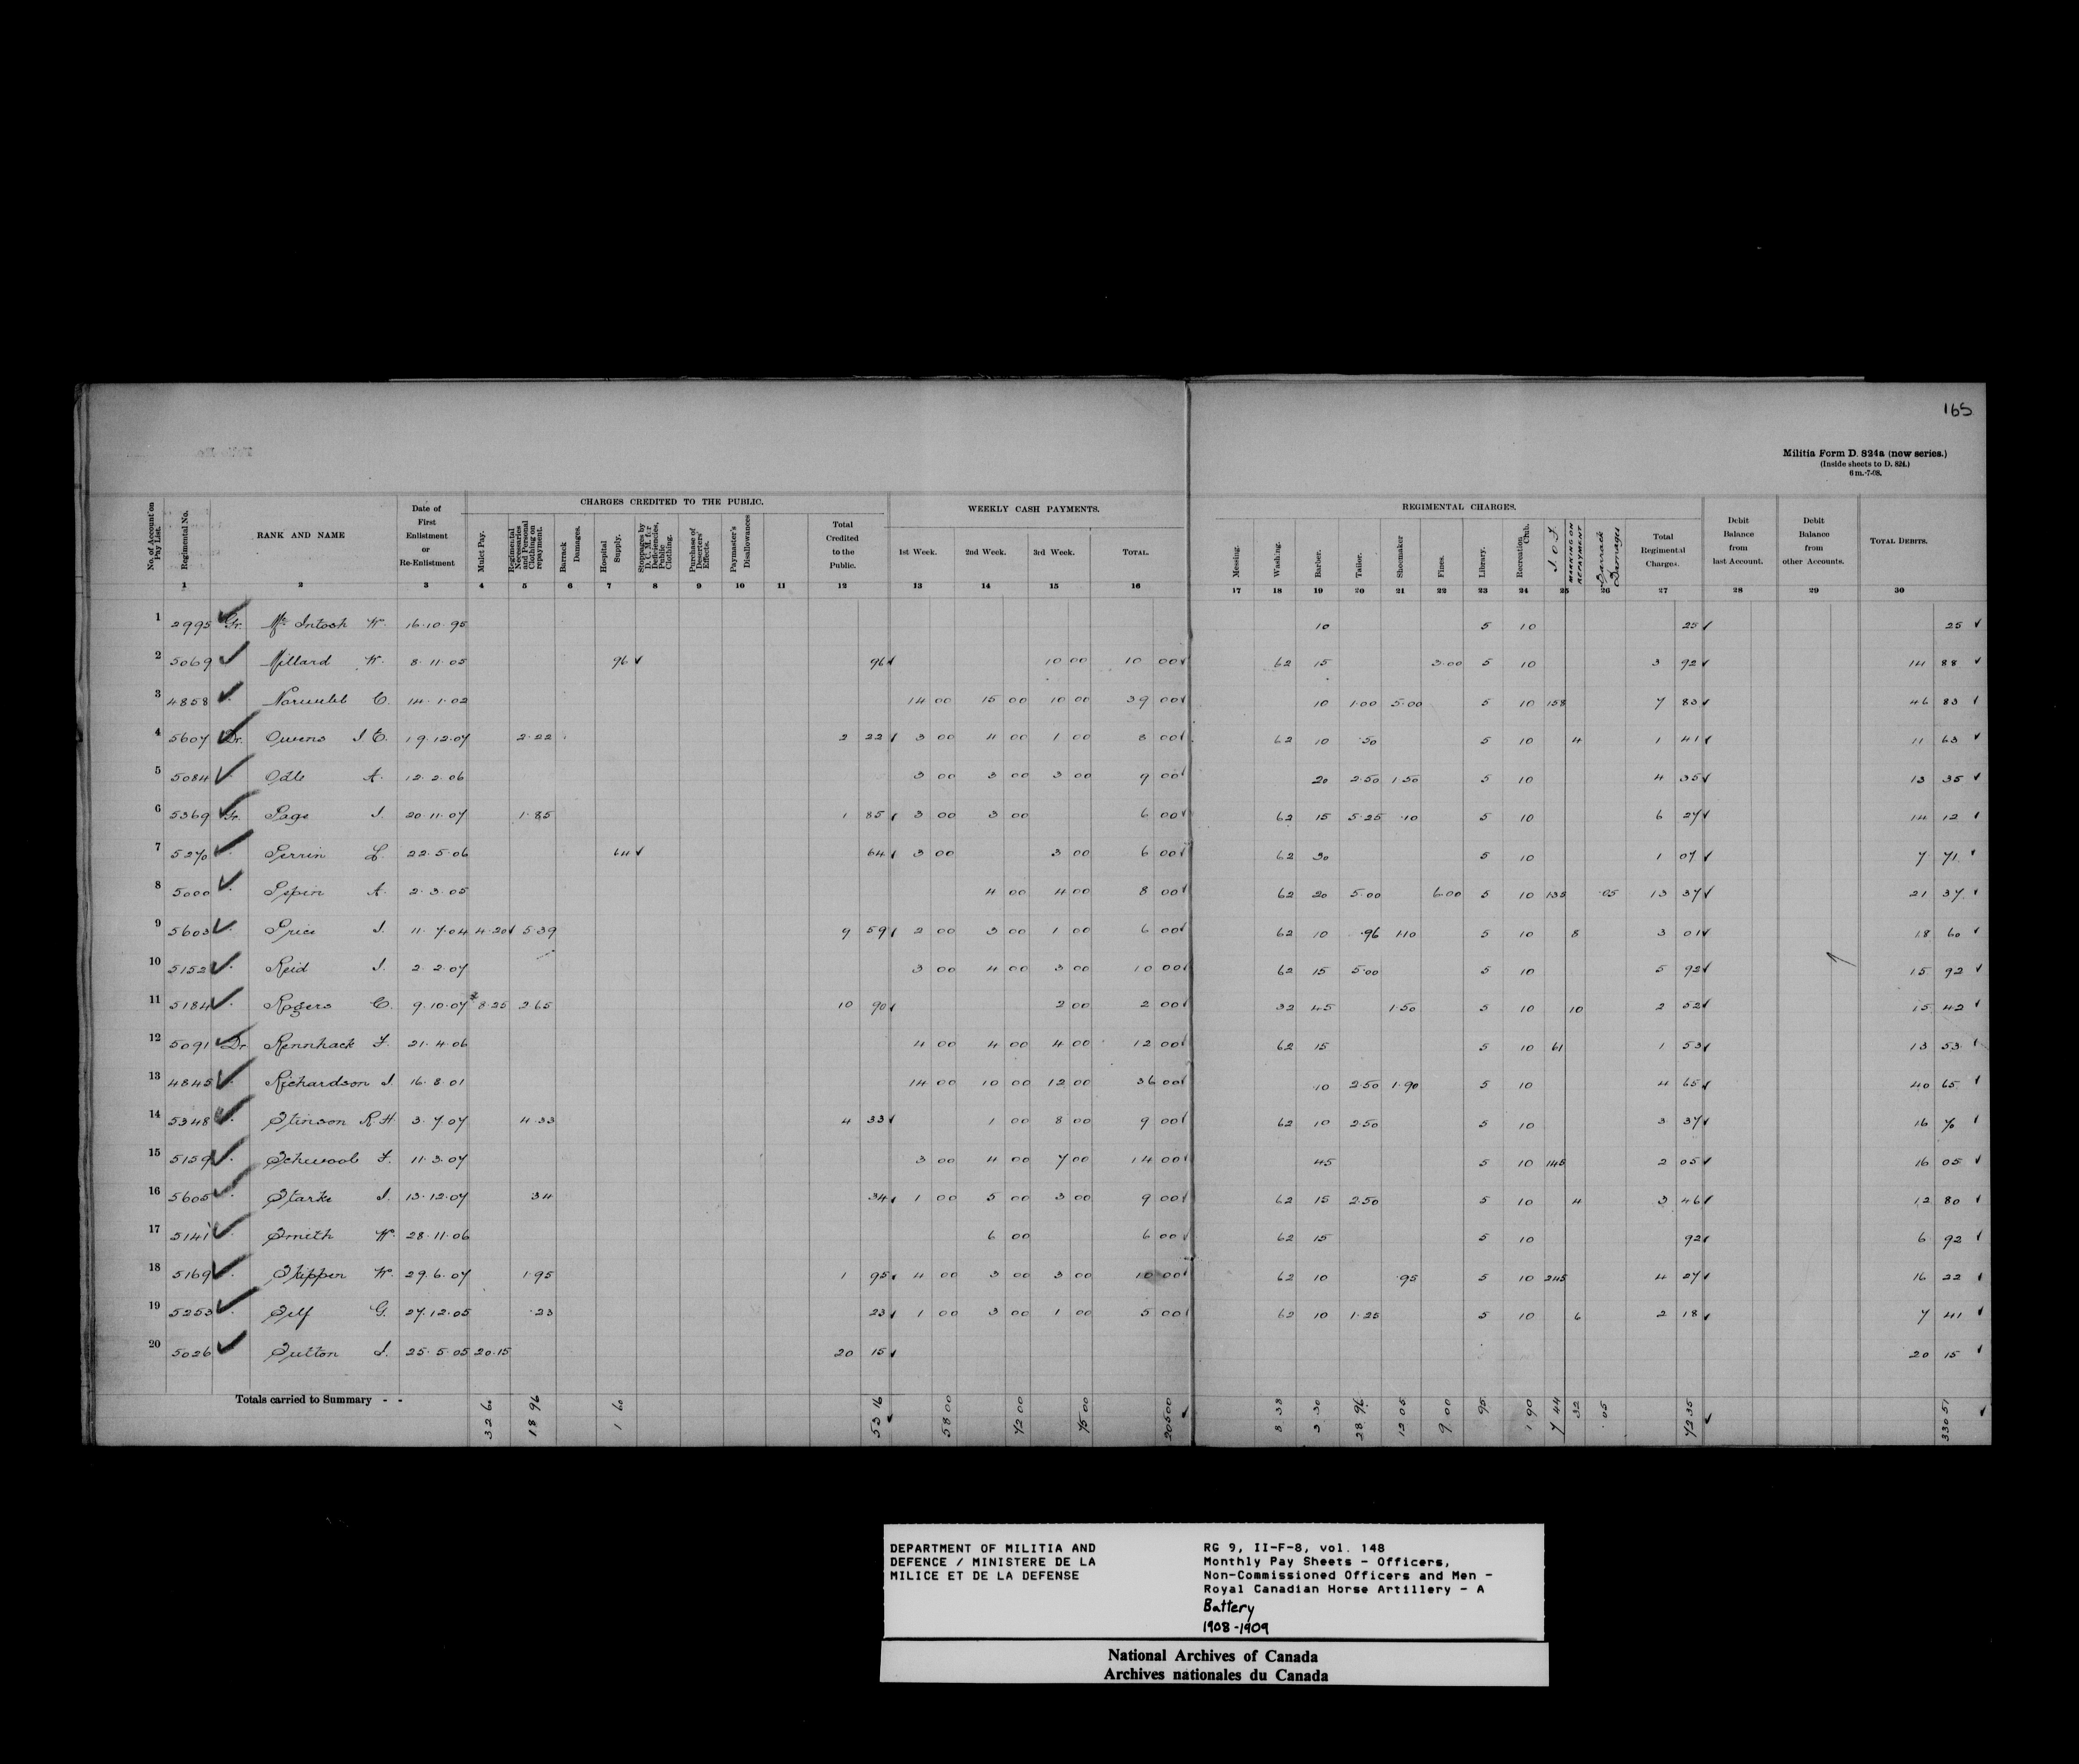 165
Militia Form D. 824a (new series.)
(Inside sheets to D. 824.)
6 m.-7-08.
CHARGES CREDITED TO THE PUBLIC. WEEKLY CASH PAYMENTS. REGIMENTAL CHARGES.
No. of Account on Pay List. Regimental No. RANK AND NAME Date of First Enlistment or Re-Enlistment Mulct Pay. Regimental Necessaries and Personal Clothing on repayment. Barrack Damages. Hospital Supply. Stoppages by D. C. M. for Deficiencies, Public Clothing. Purchase of Deserters' Effects. Paymaster's Disallowances Total Credited to the Public. 1st Week. 2nd Week. 3rd Week. TOTAL. Messing. Washing. Barber. Tailor. Shoemaker Fines. Library. Recreation Club. MARKING ON REPAYMENT Barrack Damages Total Regimental Charges. Debit Balance from last Account. Debit Balance from other Accounts. TOTAL DEBITS.
1 2 3 4 5 6 7 8 9 10 11 12 13 14 15 16 17 18 19 20 21 22 23 24 25 26 27 28 29 30
1 2995 Gr. McIntosh W. 16.10.95 10 5 10 25 25
2 5069 Millard W. 8.11.05 96 96 10 00 10 00 62 15 3.00 5 10 3 92 14 88
3 4858 C. 14.1.02 14 00 15 00 10 00 39 00 10 1.00 5.00 5 10 158 7 83 46 83
4 5607 Dr. Owens J.C. 19.12.07 2.22 2 22 3 00 4 00 1 00 8 00 62 10 .50 5 10 4 1 41 11 63
5 5084 Odle A. 12.2.06 3 00 3 00 3 00 9 00 20 2.50 1.50 5 10 4 35 13 35
6 5369 Gr. Page J. 20.11.07 1.85 1 85 3 00 3 00 6 00 62 15 5.25 .10 5 10 6 27 14 12
7 5270 Perrin L. 22.5.06 64 64 3 00 3 00 6 00 62 30 5 10 1 07 7 71
8 5000 Pepin A. 2.3.05 4 00 4 00 8 00 62 20 5.00 6.00 5 10 135 .05 13 37 21 37
9 5603 Price J. 11.7.04 4.20 5.39 9 59 2 00 3 00 1 00 6 00 62 10 .96 1.10 5 10 8 3 01 18 60
10 5152 Reid J. 2.2.07 3 00 4 00 3 00 10 00 62 15 5.00 5 10 5 92 15 92
11 5184 Rogers C. 9.10.07 8.25 2.65 10 90 2 00 2 00 32 45 1.50 5 10 10 2 52 15 42
12 5091 Dr. Rennhack F. 21.4.06 4 00 4 00 4 00 12 00 62 15 5 10 61 1 53 13 53
13 4845 Richardson J. 16.8.01 14 00 10 00 12 00 36 00 10 2.50 1.90 5 10 4 65 40 65
14 5348 Stinson R.H. 3.7.07 4.33 4 33 1 00 8 00 9 00 62 10 2.50 5 10 3 37 16 70
15 5159 Schwoob F. 11.3.07 3 00 4 00 7 00 14 00 45 5 10 145 2 05 16 05
16 5605 Starke J. 13.12.07 34 34 1 00 5 00 3 00 9 00 62 15 2.50 5 10 4 3 46 12 80
17 5141 Smith W. 28.11.06 6 00 6 00 62 15 5 10 92 6 92
18 5169 Skipper W. 29.6.07 1.95 1 95 4 00 3 00 3 00 10 00 62 10 .95 5 10 245 4 27 16 22
19 5253 Self G. 27.12.05 .23 23 1 00 3 00 1 00 5 00 62 10 1.25 5 10 6 2 18 7 41
20 5026 Sutton J. 25.5.05 20.15 20 15 20 15
Totals carried to Summary - - 32 60 18 96 1 60 53 16 58 00 72 00 75 00 205 00 8 33 3 30 28 96 12 05 9 00 95 1 90 7 44 32 .05 72 35 330 51
DEPARTMENT OF MILITIA AND
DEFENCE / MINISTERE DE LA
MILICE ET DE LA DEFENSE
RG 9, II-F-8, vol. 148
Monthly Pay Sheets - Officers,
Non-Commissioned Officers and Men -
Royal Canadian Horse Artillery - A
Battery
1908-1909
National Archives of Canada
Archives nationales du Canada